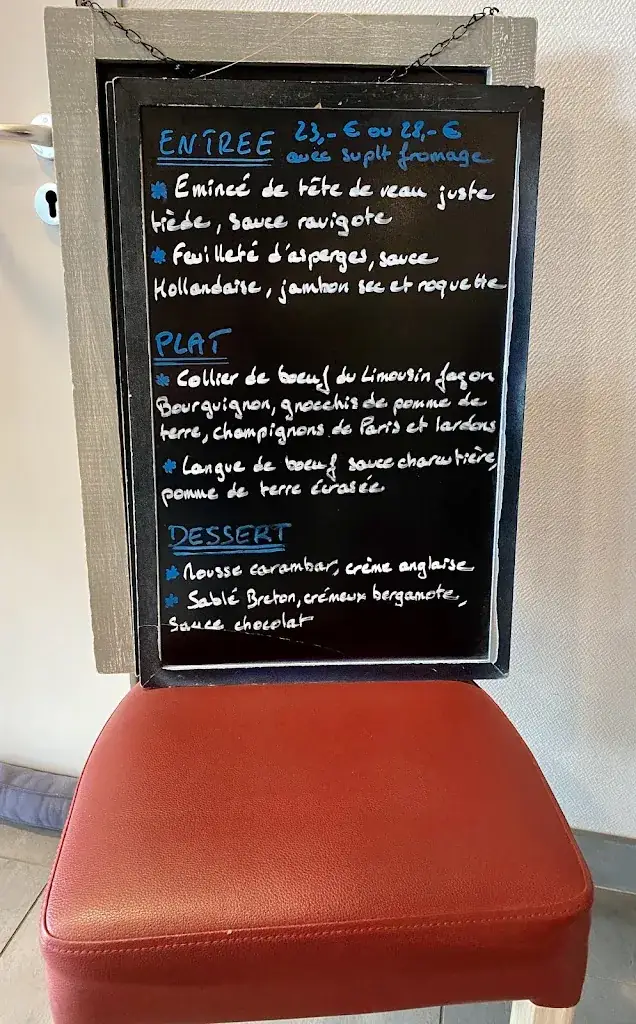 ENTREE 23,- € ou 28,- €
avec suplt fromage
* Emincé de tête de veau juste
tiède, sauce ravigote
* Feuilleté d'asperges, sauce
Hollandaise, jambon sec et roquette
PLAT
* Collier de boeuf du Limousin façon
Bourguignon, gnocchis de pomme de
terre, champignons de Paris et lardons
* Langue de boeuf sauce charcutière,
pomme de terre écrasée
DESSERT
* Mousse carambar, crème anglaise
* Sablé Breton, crémeux bergamote,
sauce chocolat